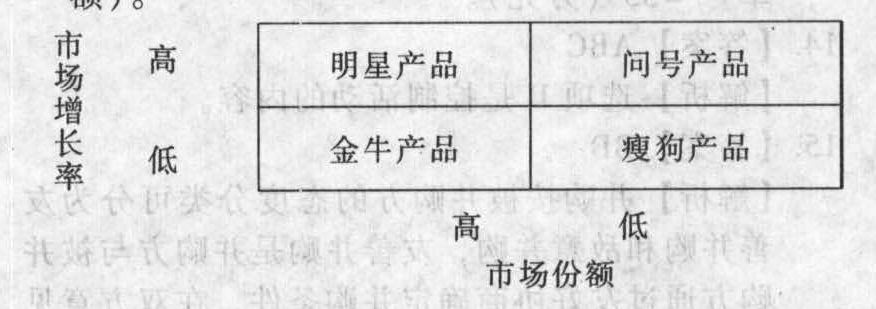 额）。
市场增长率
高
明星产品
问号产品
低
金牛产品
瘦狗产品
高
低
市场份额